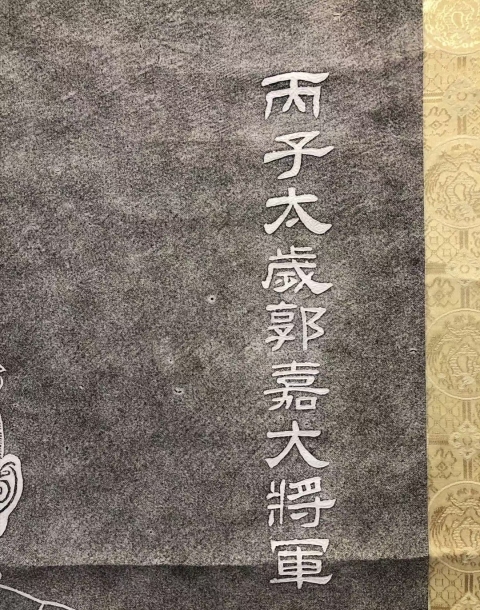 丙子太歲郭嘉大將軍